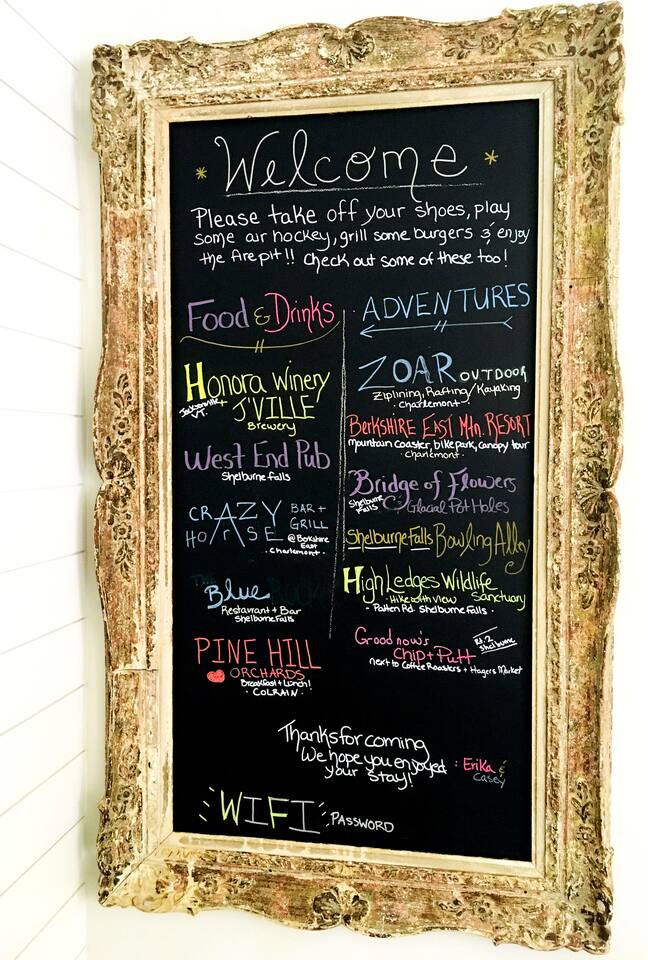 * Welcome *
Please take off your shoes, play
some air hockey, grill some burgers & enjoy
the fire pit!! Check out some of these too!
Food & Drinks
Honora Winery
Jacksonville VT. + J'VILLE
Brewery
West End Pub
Shelburne falls
CRAZY BAR +
HOrSE GRILL
@ Berkshire
East
· Charlemont ·
THE
Blue ROCK
Restaurant + Bar
Shelburne Falls
PINE HILL
ORCHARDS
Breakfast + Lunch!
· COLRAIN ·
ADVENTURES
ZOAR OUTDOOR
Ziplining, Rafting/Kayaking
· Charlemont ·
BERKSHIRE EAST Mtn. RESORT
mountain coaster, bike park, canopy tour
· charlemont ·
Bridge of Flowers
Shelburne Falls & Glacial Pot Holes
Shelburne Falls Bowling Alley
High Ledges Wildlife
· Hike with view Sanctuary
· Patten Rd. Shelburne Falls ·
Goodnow's Rt. 2 Shelburne
Chip + Putt
next to Coffee Roasters + Hagers Market
Thanks for coming
We hope you enjoyed
your stay! : Erika &
Casey
WIFI : PASSWORD